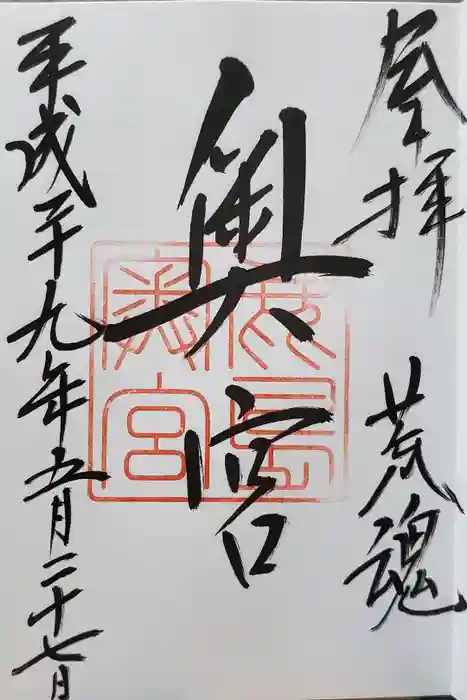 奉拝 荒魂
奥宮
鹿島奥宮
平成二十九年五月二十七日